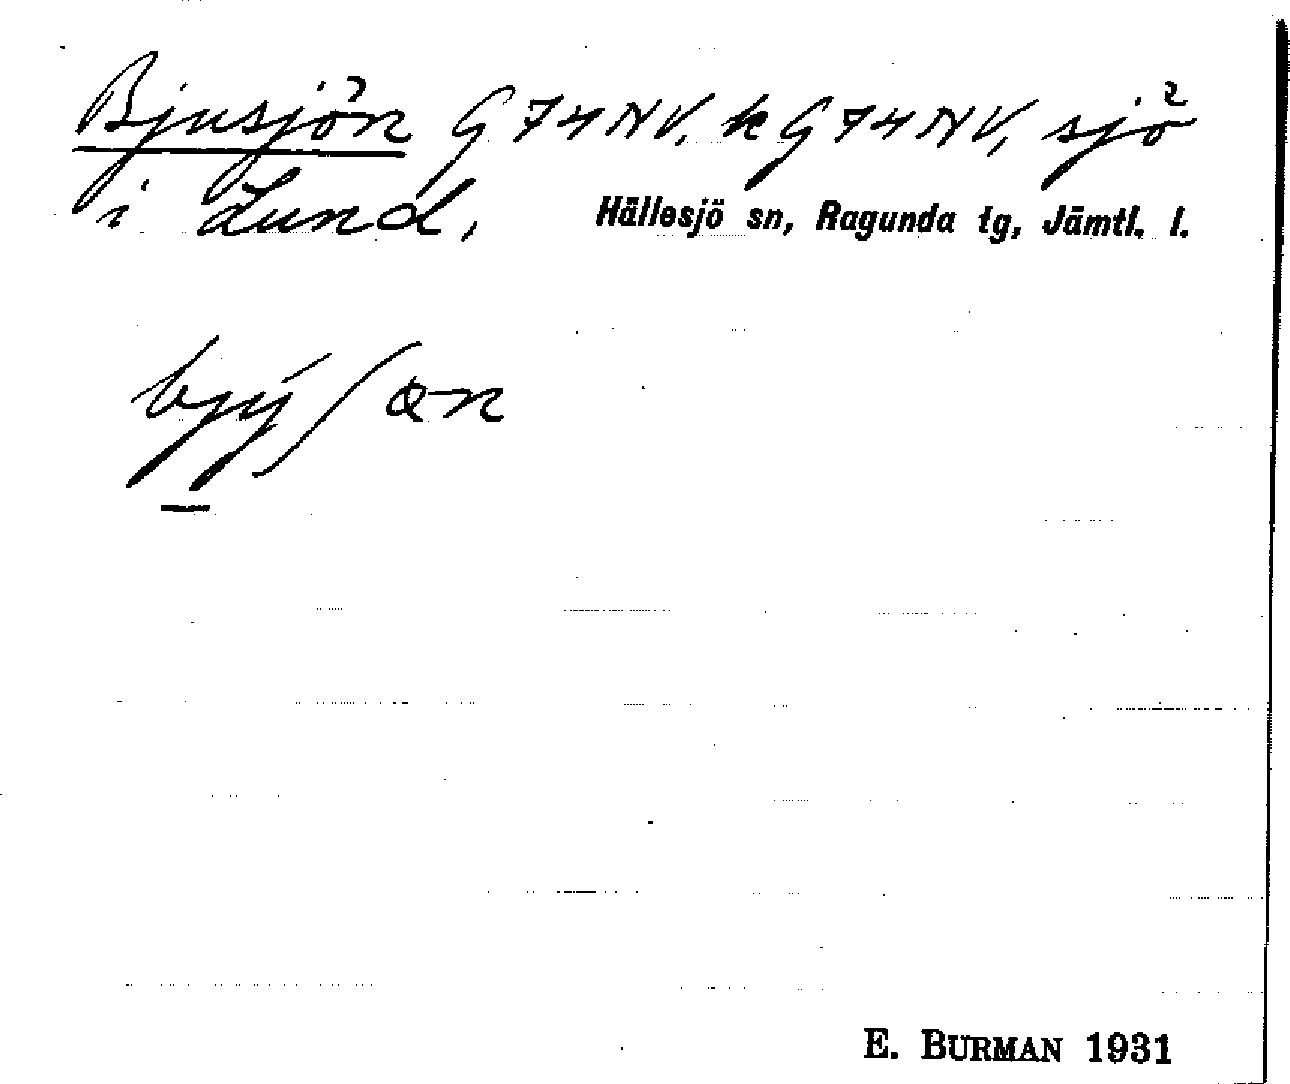 Bjusjön G 74 NV, k G 74 NV, sjö
i Lund, Hällesjö sn, Ragunda tg, Jämtl. l.
E. BURMAN 1931